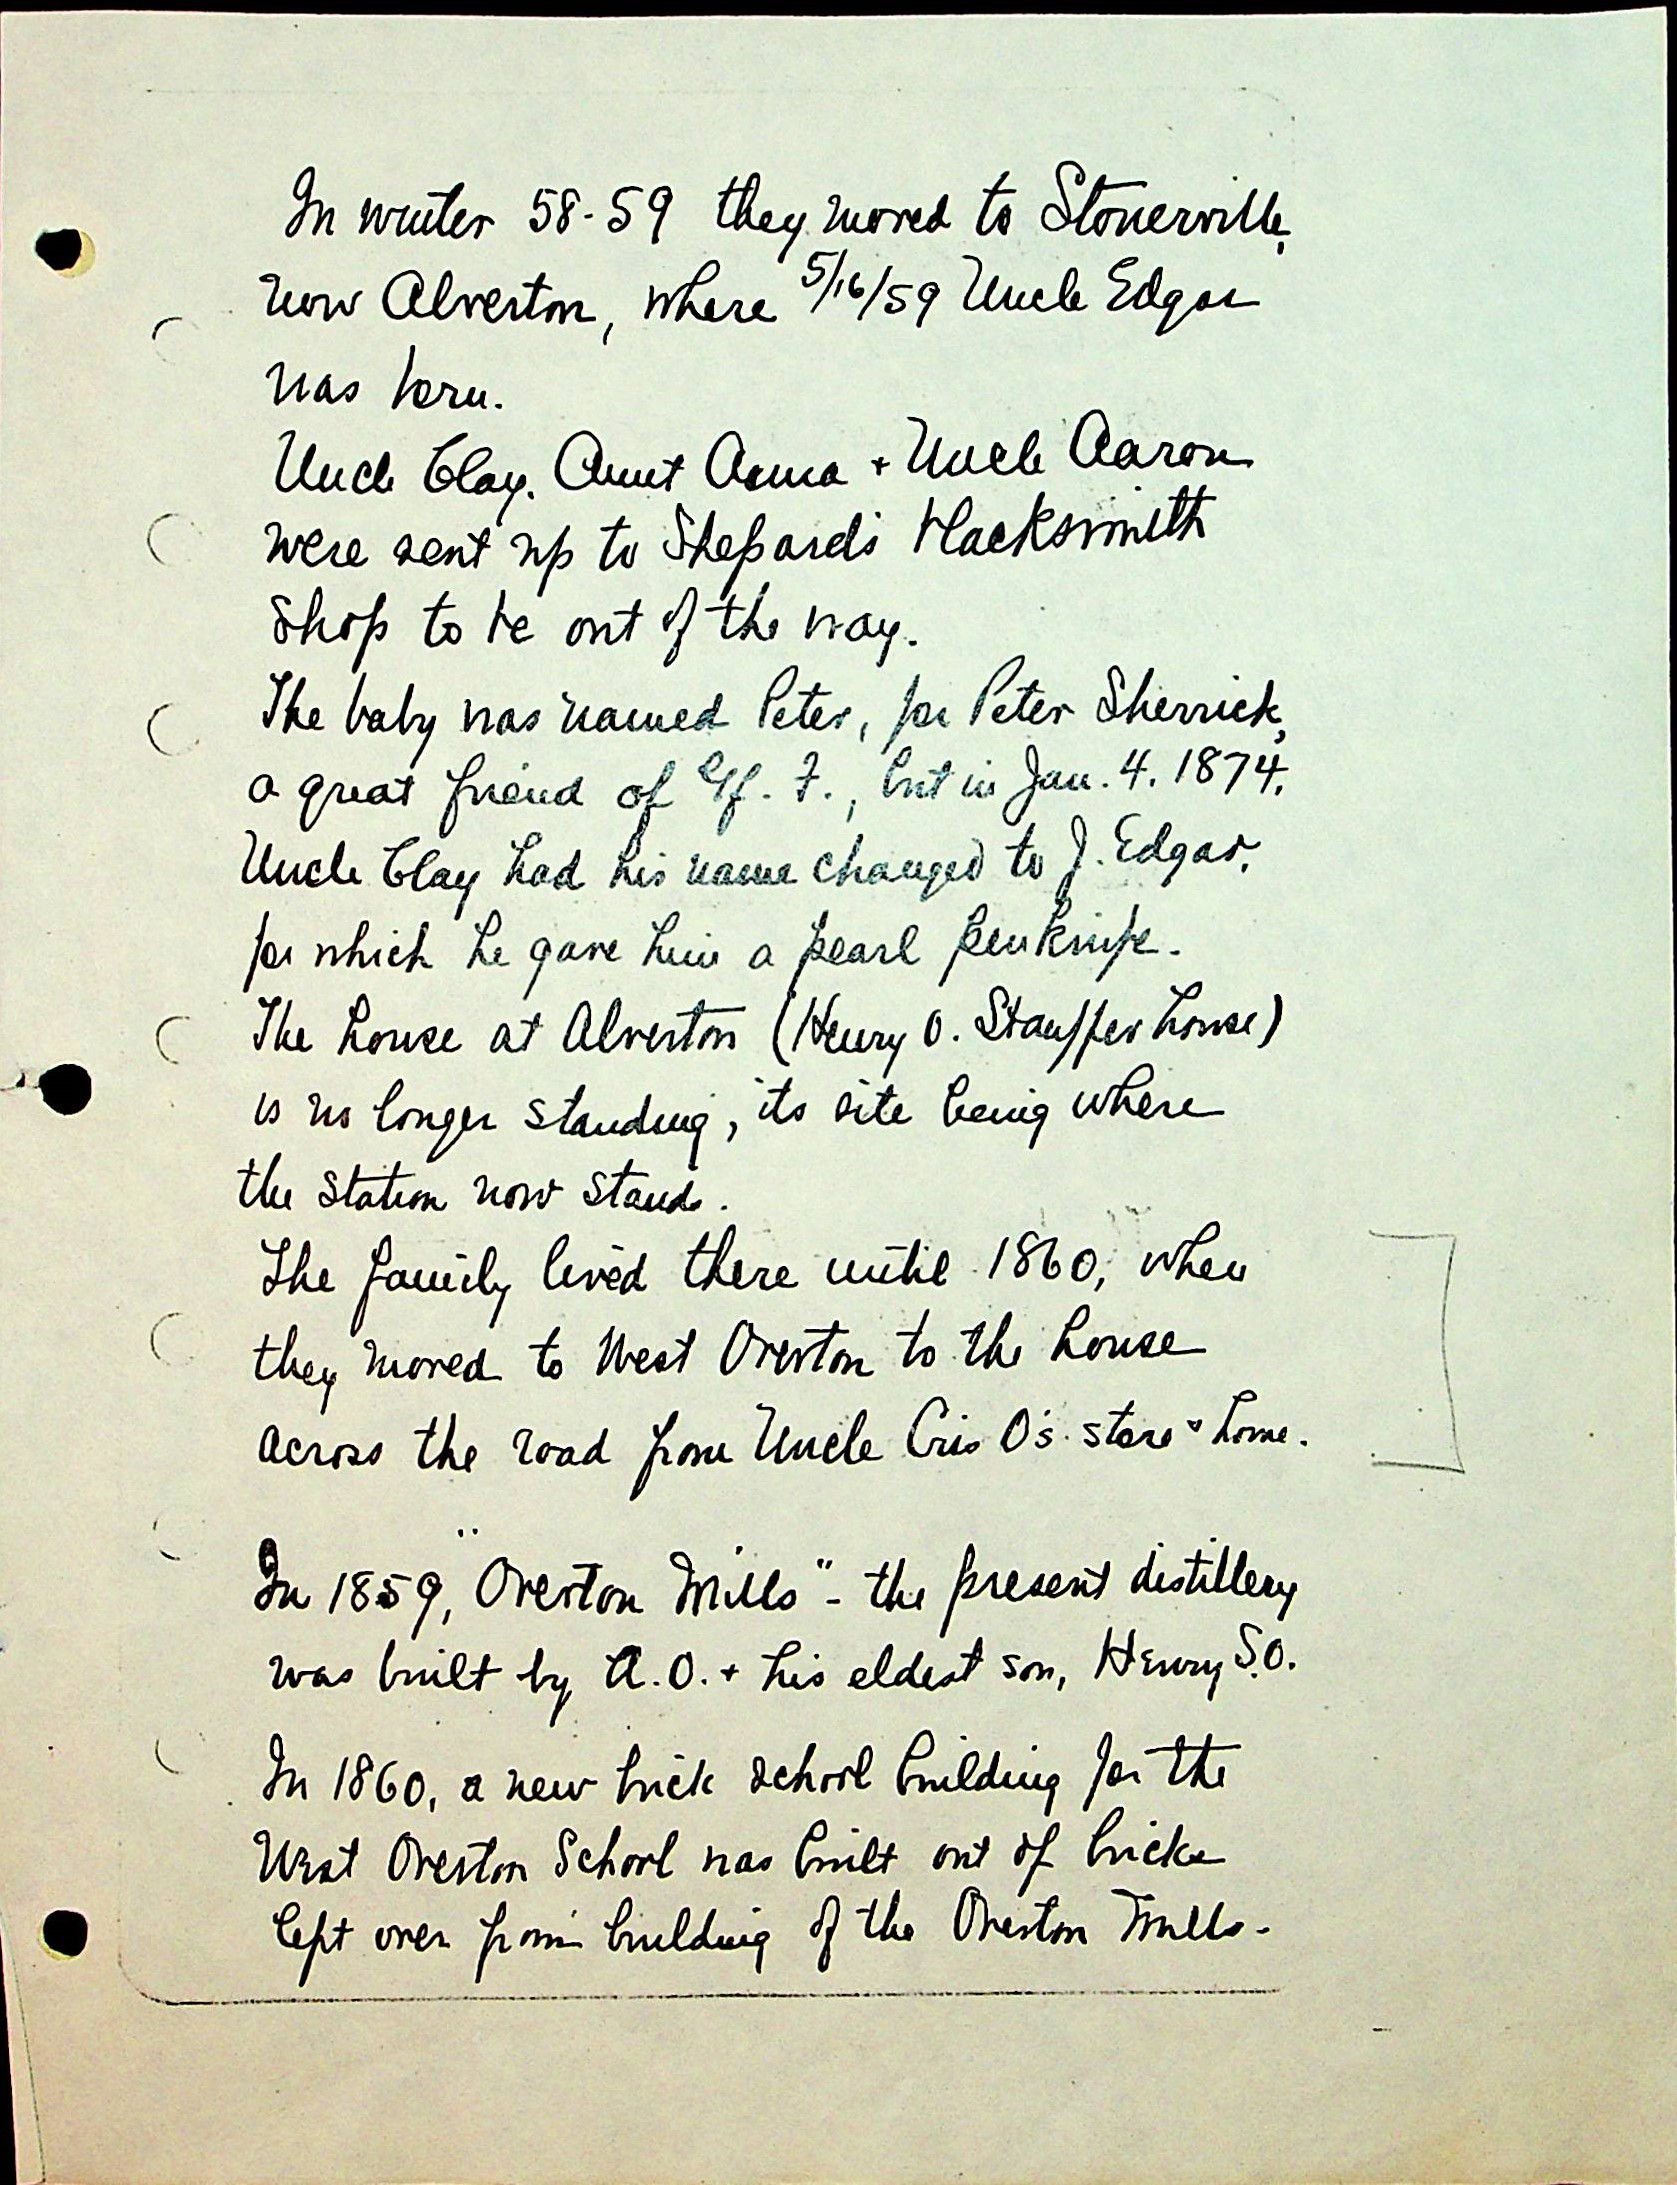 In winter 58-59 they moved to Stonerville,
now Alverton, where 5/16/59 Uncle Edgar
was born.
Uncle Clay, Aunt Anna + Uncle Aaron
were sent up to Shepard's Blacksmith
Shop to be out of the way.
The baby was named Peter, for Peter Sherrick,
a great friend of Gf. F., but in Jan. 4. 1874,
Uncle Clay had his name changed to J. Edgar,
for which he gave him a pearl penknife.
The house at Alverton (Henry O. Stauffer house)
is no longer standing, its site being where
the station now stands.
The family lived there until 1860, when
they moved to West Overton to the house
across the road from Uncle Cris O's. store & home.
In 1859, "Overton Mills" - the present distillery
was built by A.O. + his eldest son, Henry S.O.
In 1860, a new brick school building for the
West Overton School was built out of bricks
left over from building of the Overton Mills -